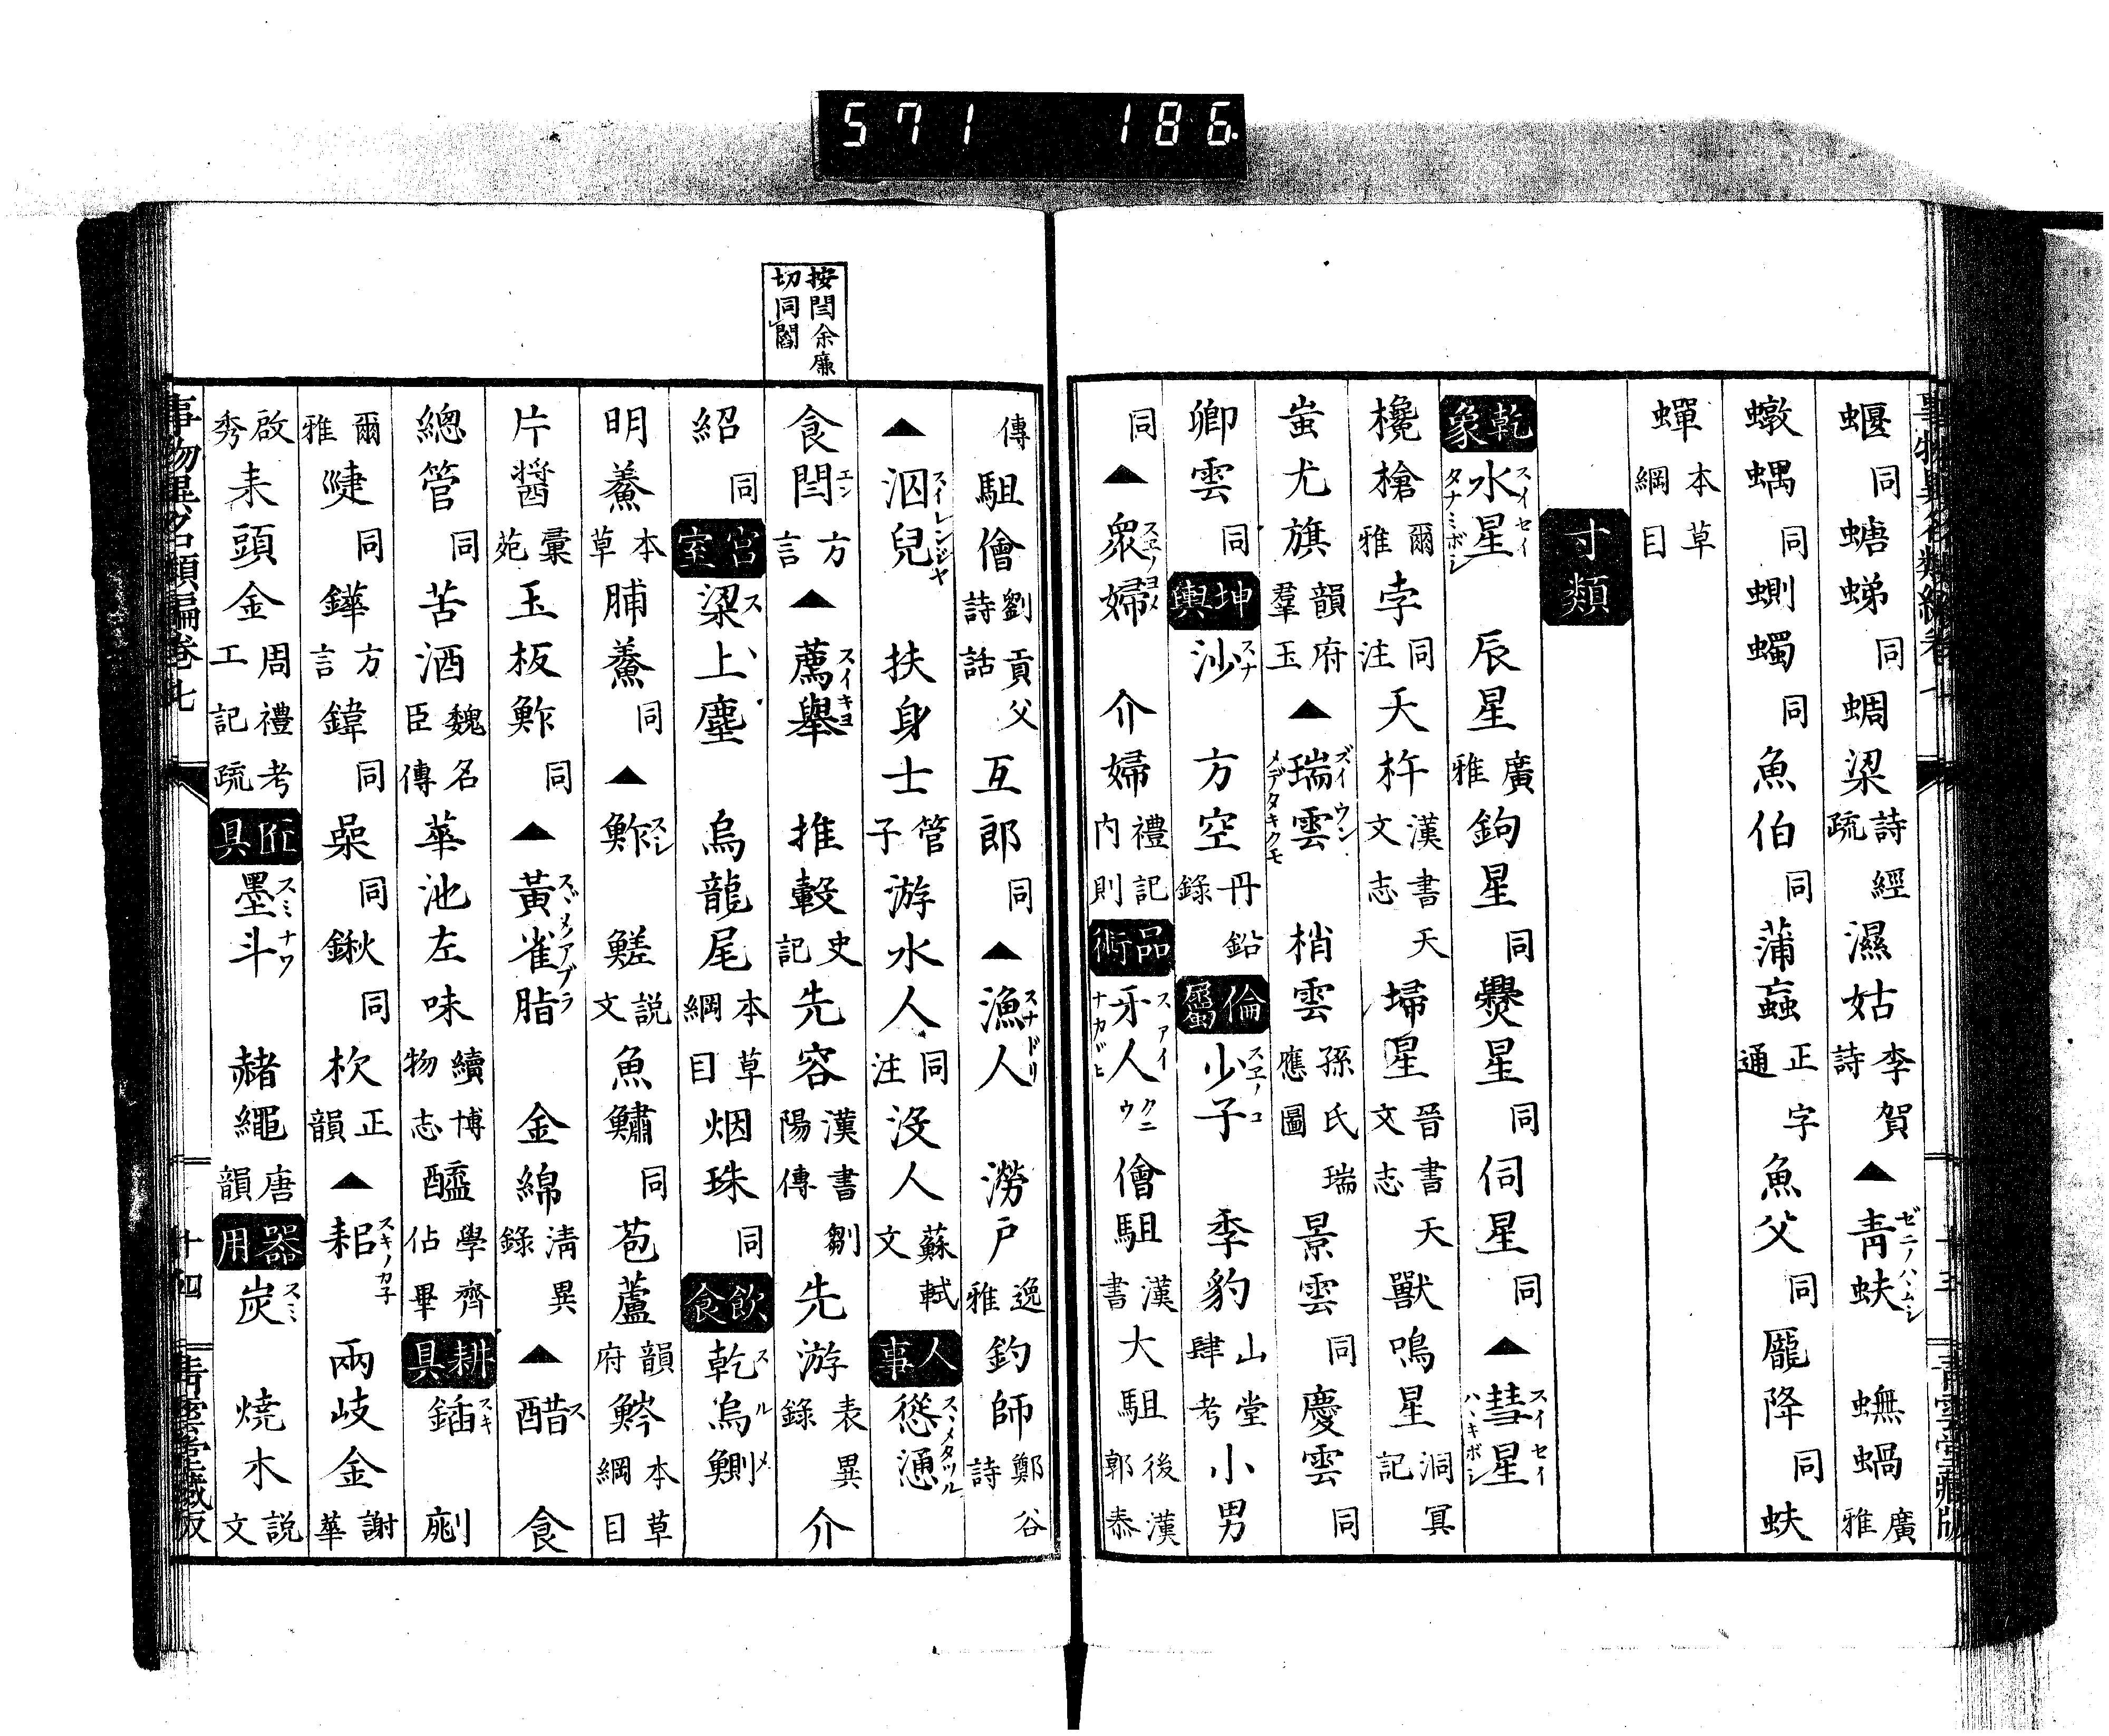 571 186
蝘同螗蛦同蜩梁詩經疏濕姑李賀詩▲青蚨ゼニノハヽムシ 蟱蝸廣雅
蟱蝺同蝲蠋同魚伯同蒲蝱正字通魚父同龎降同蚨
蟬本草綱目
寸類
乾象 水星スイセイ タナミボシ 辰星廣雅鉤星同㸑星同伺星同▲彗星スイセイ ハヽキボシ
欃槍爾雅孛同注天杵漢書天文志 埽星晉書天文志獸鳴星洞冥記
蚩尤旗韻府羣玉▲瑞雲ズイウン メデタキクモ 梢雲孫氏瑞應圖景雲同慶雲同
卿雲同 坤輿 沙スナ 方空丹鉛錄 倫屬 少子スヱノコ 季豹山堂肆考小男
同▲衆婦スヱノヨメ 介婦禮記內則 品術 牙人スアイ ナカガヒ クニウ 儈駔漢書大駔後漢郭泰
傳駔儈劉貢父詩話互郎同▲漁人スナドリ 澇戶逸雅釣師鄭谷詩
▲泅兒スイレンジヤ 扶身士管子游水人同注沒人蘇軾文 人事 慫慂スヽメタツル
食閆エン方言▲薦舉スイキヨ 推轂史記先容漢書鄒陽傳先游表異錄介
按閆余廉切同閻
紹同 宮室 梁上塵スヽ 烏龍尾本草綱目烟珠同 飲食 乾烏鰂スルメ
明鮝本草脯鮝同▲鮓スシ 鮺說文魚鱐同苞蘆韻府魿本草綱目
片醬彙苑玉板鮓同▲黃雀脂スヾメノアブラ 金綿清異錄▲醋ス 食
總管同苦酒魏名臣傳華池左味續博物志醯學齊佔畢 耕具 鍤スキ 㓷
爾雅疌同鏵方言鍏同喿同鍬同杴正韻▲耜スキノカ子 兩岐金謝華
啟秀耒頭金周禮考工記疏 匠具 墨斗スミナワ 赭繩唐韻 器用 炭スミ 燒木說文
事物異名類編卷七 十四 青雲堂藏版